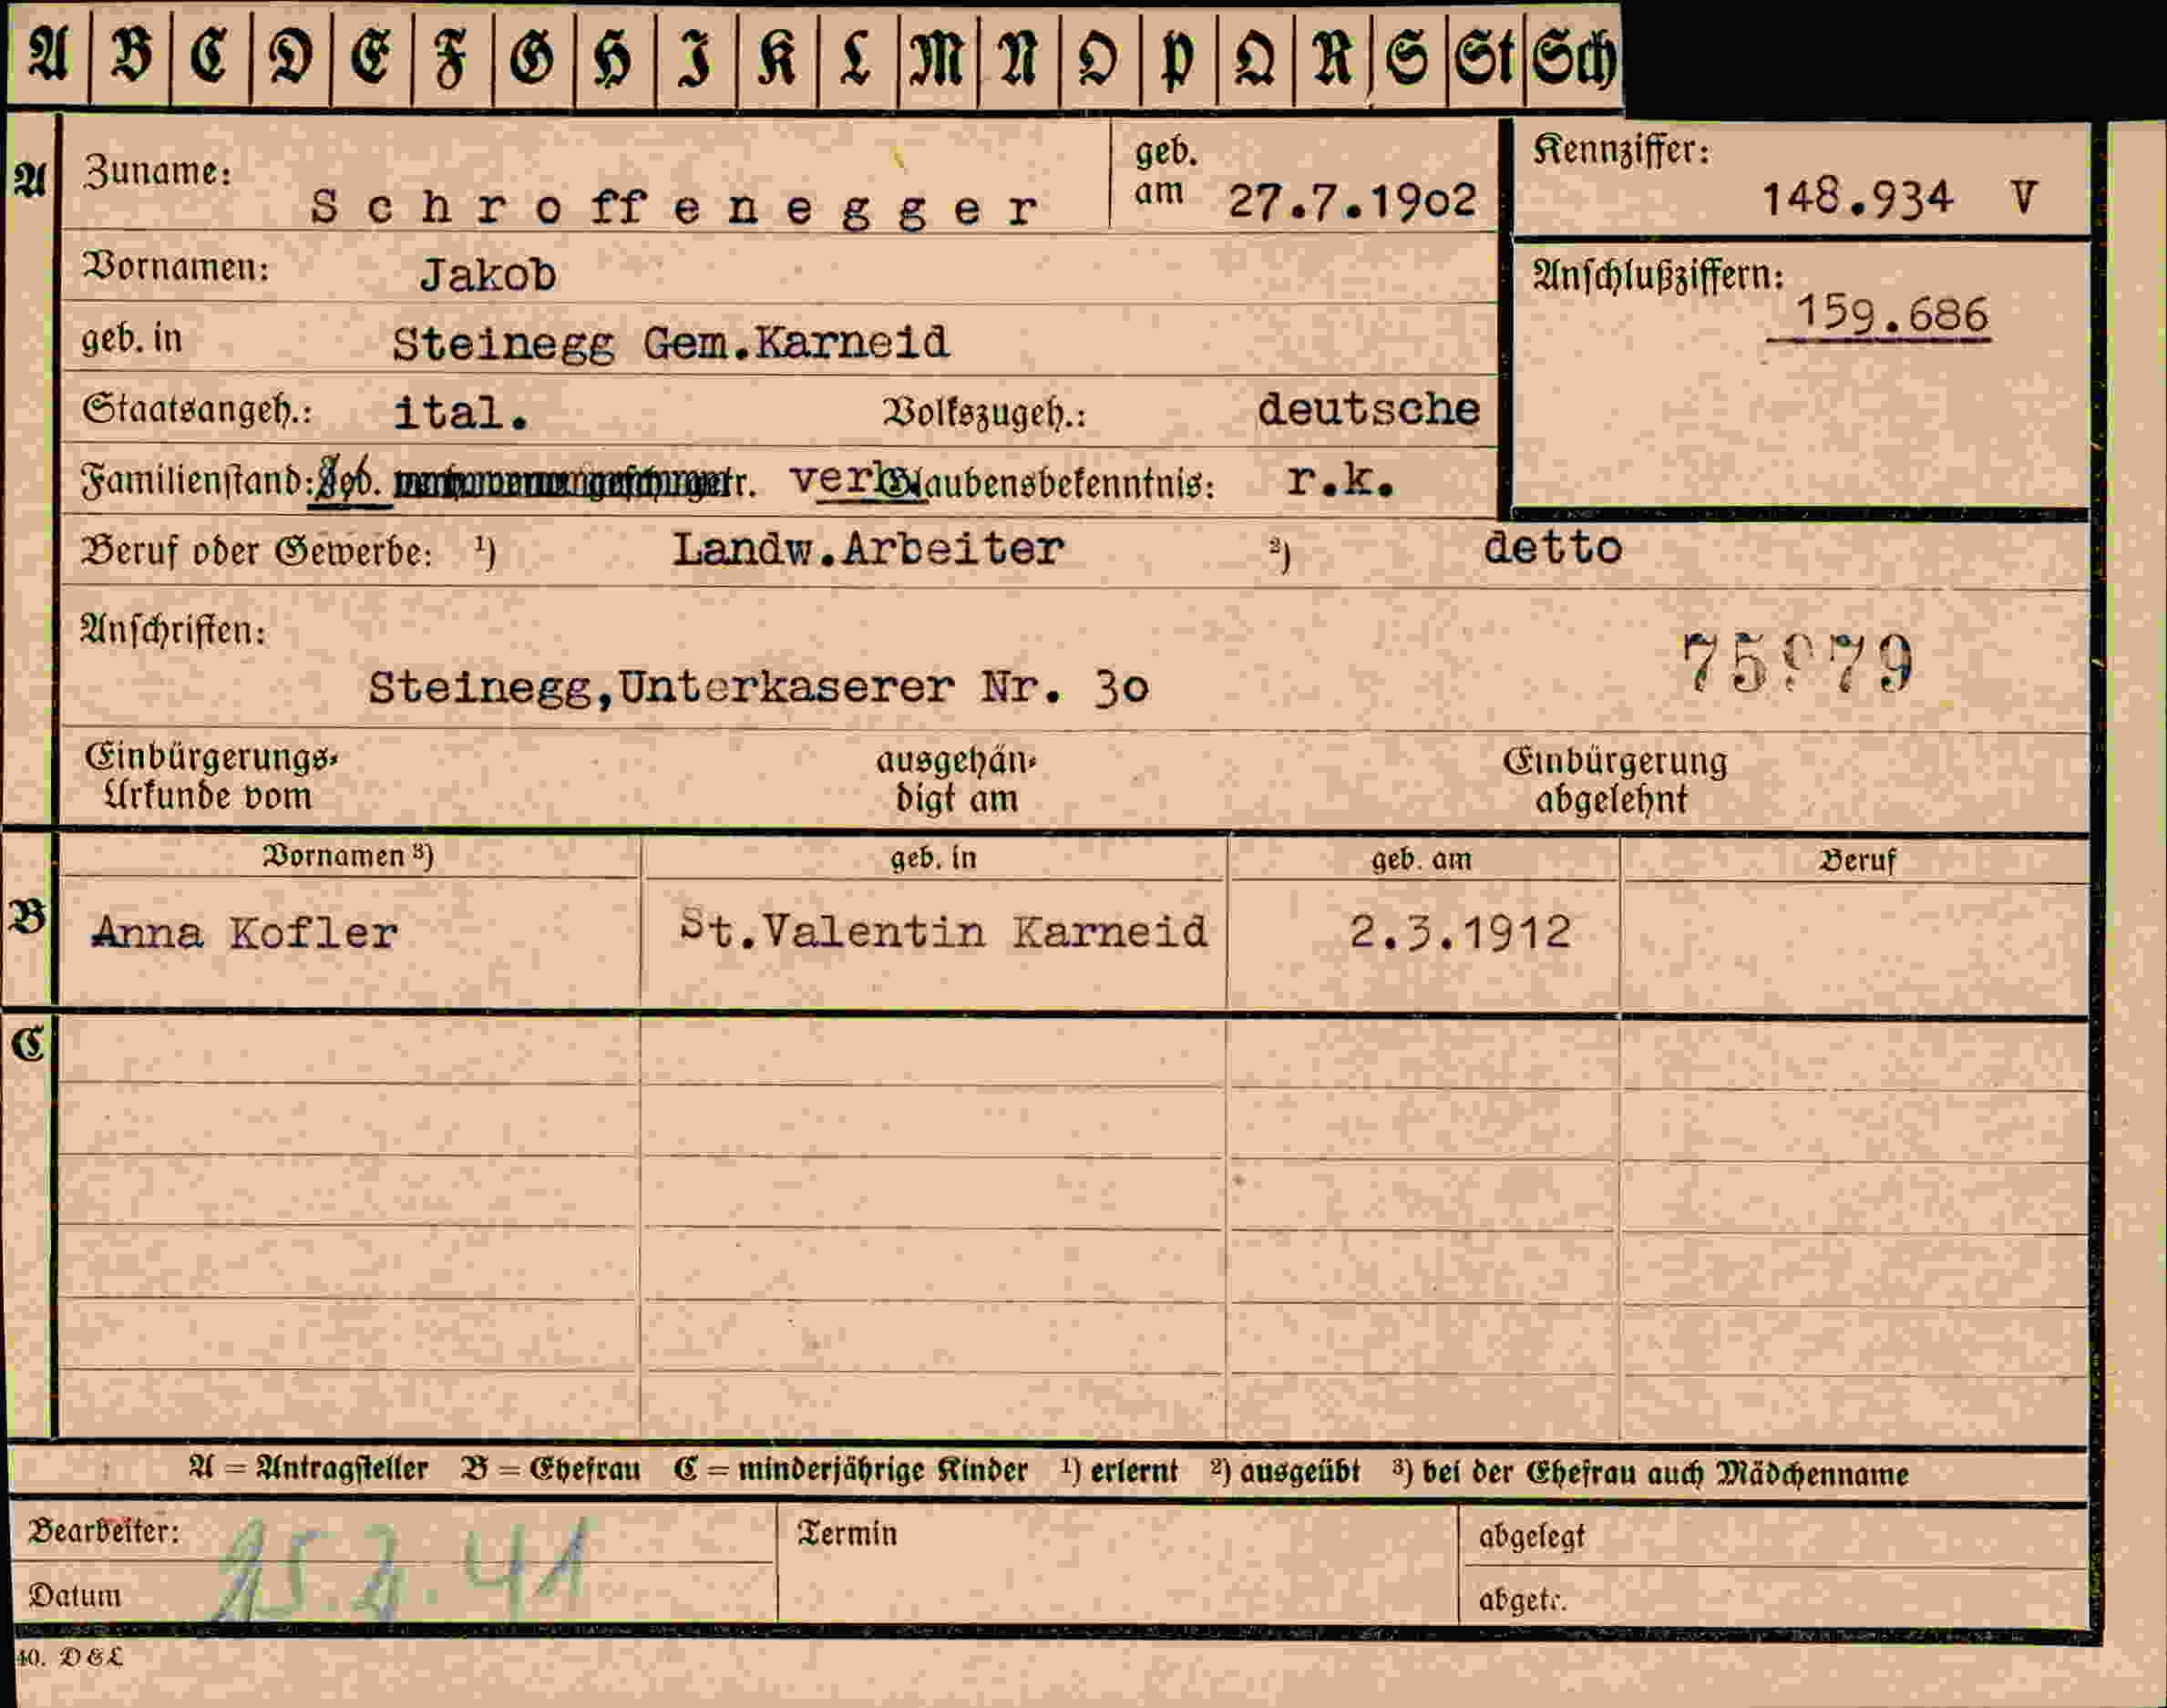 A B C D E F G H I K L M N O P Q R S St Sch
A Zuname: Schroffenegger geb. am 27.7.1902 Kennziffer: 148.934 V
Vornamen: Jakob Anschlußziffern: 159.686
geb. in Steinegg Gem.Karneid
Staatsangeh.: ital. Volkszugeh.: deutsche
Familienstand: verh Glaubensbekenntnis: r.k.
Beruf oder Gewerbe: ¹) Landw.Arbeiter ²) detto
Anschriften:
Steinegg,Unterkaserer Nr. 30
Einbürgerungs-Urkunde vom ausgehändigt am Einbürgerung abgelehnt
Vornamen ³) geb. in geb. am Beruf
B Anna Kofler St.Valentin Karneid 2.3.1912
C
A = Antragsteller B = Ehefrau C = minderjährige Kinder ¹) erlernt ²) ausgeübt ³) bei der Ehefrau auch Mädchenname
Bearbeiter: Termin abgelegt
Datum abgetr.
40. D&L